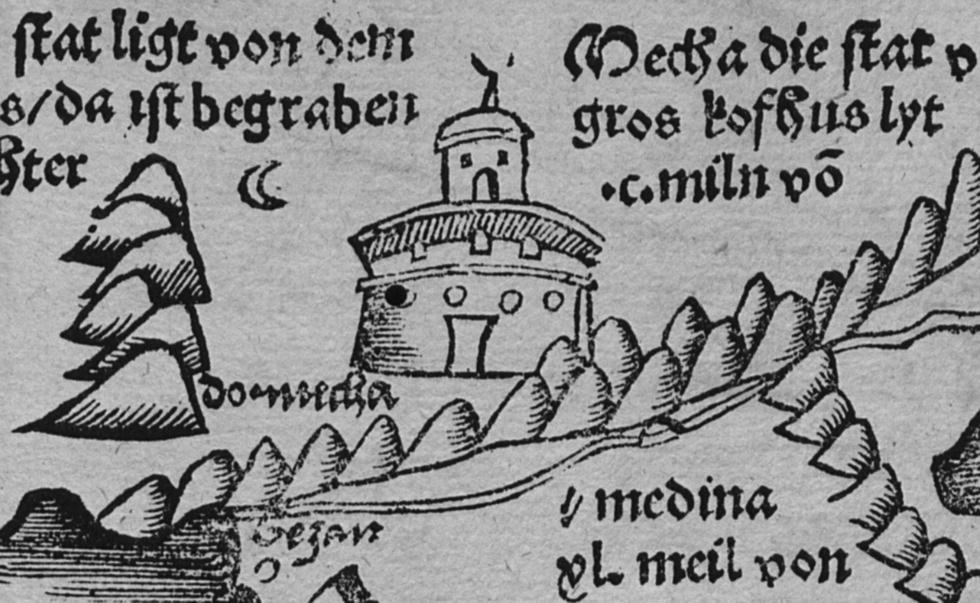 stat ligt von dem
s/da ist begraben
hter
Mecha die stat v
gros kofhus lyt
.c. miln võ
do mecha
bezan
medina
xl. meil von